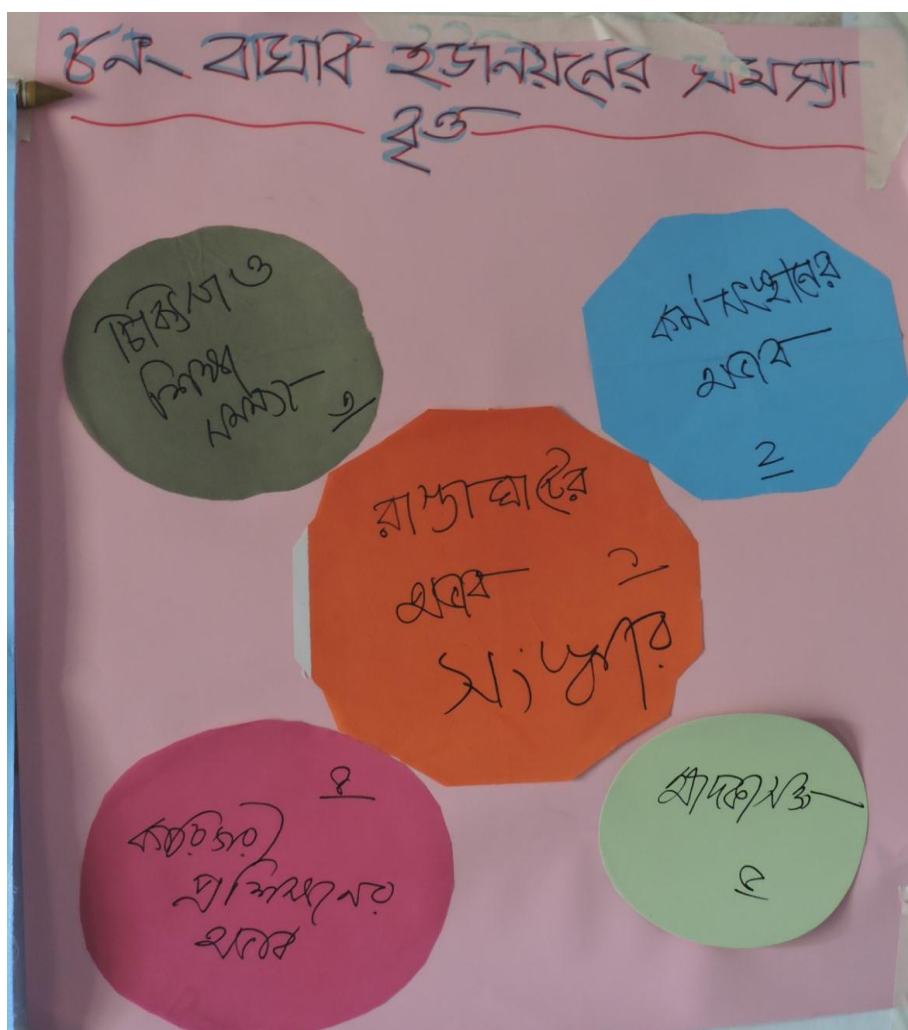 ৮নং বাঘাব ইউনিয়নের সমস্যা
বৃত্ত
চিকিৎসা ও
শিক্ষা
সমস্যা ৩
কর্মসংস্থানের
অভাব
২
রাস্তাঘাটের
অভাব ১
সংস্কার
৪
কারিগরী
প্রশিক্ষনের
অভাব
মাদকাসক্ত
৫